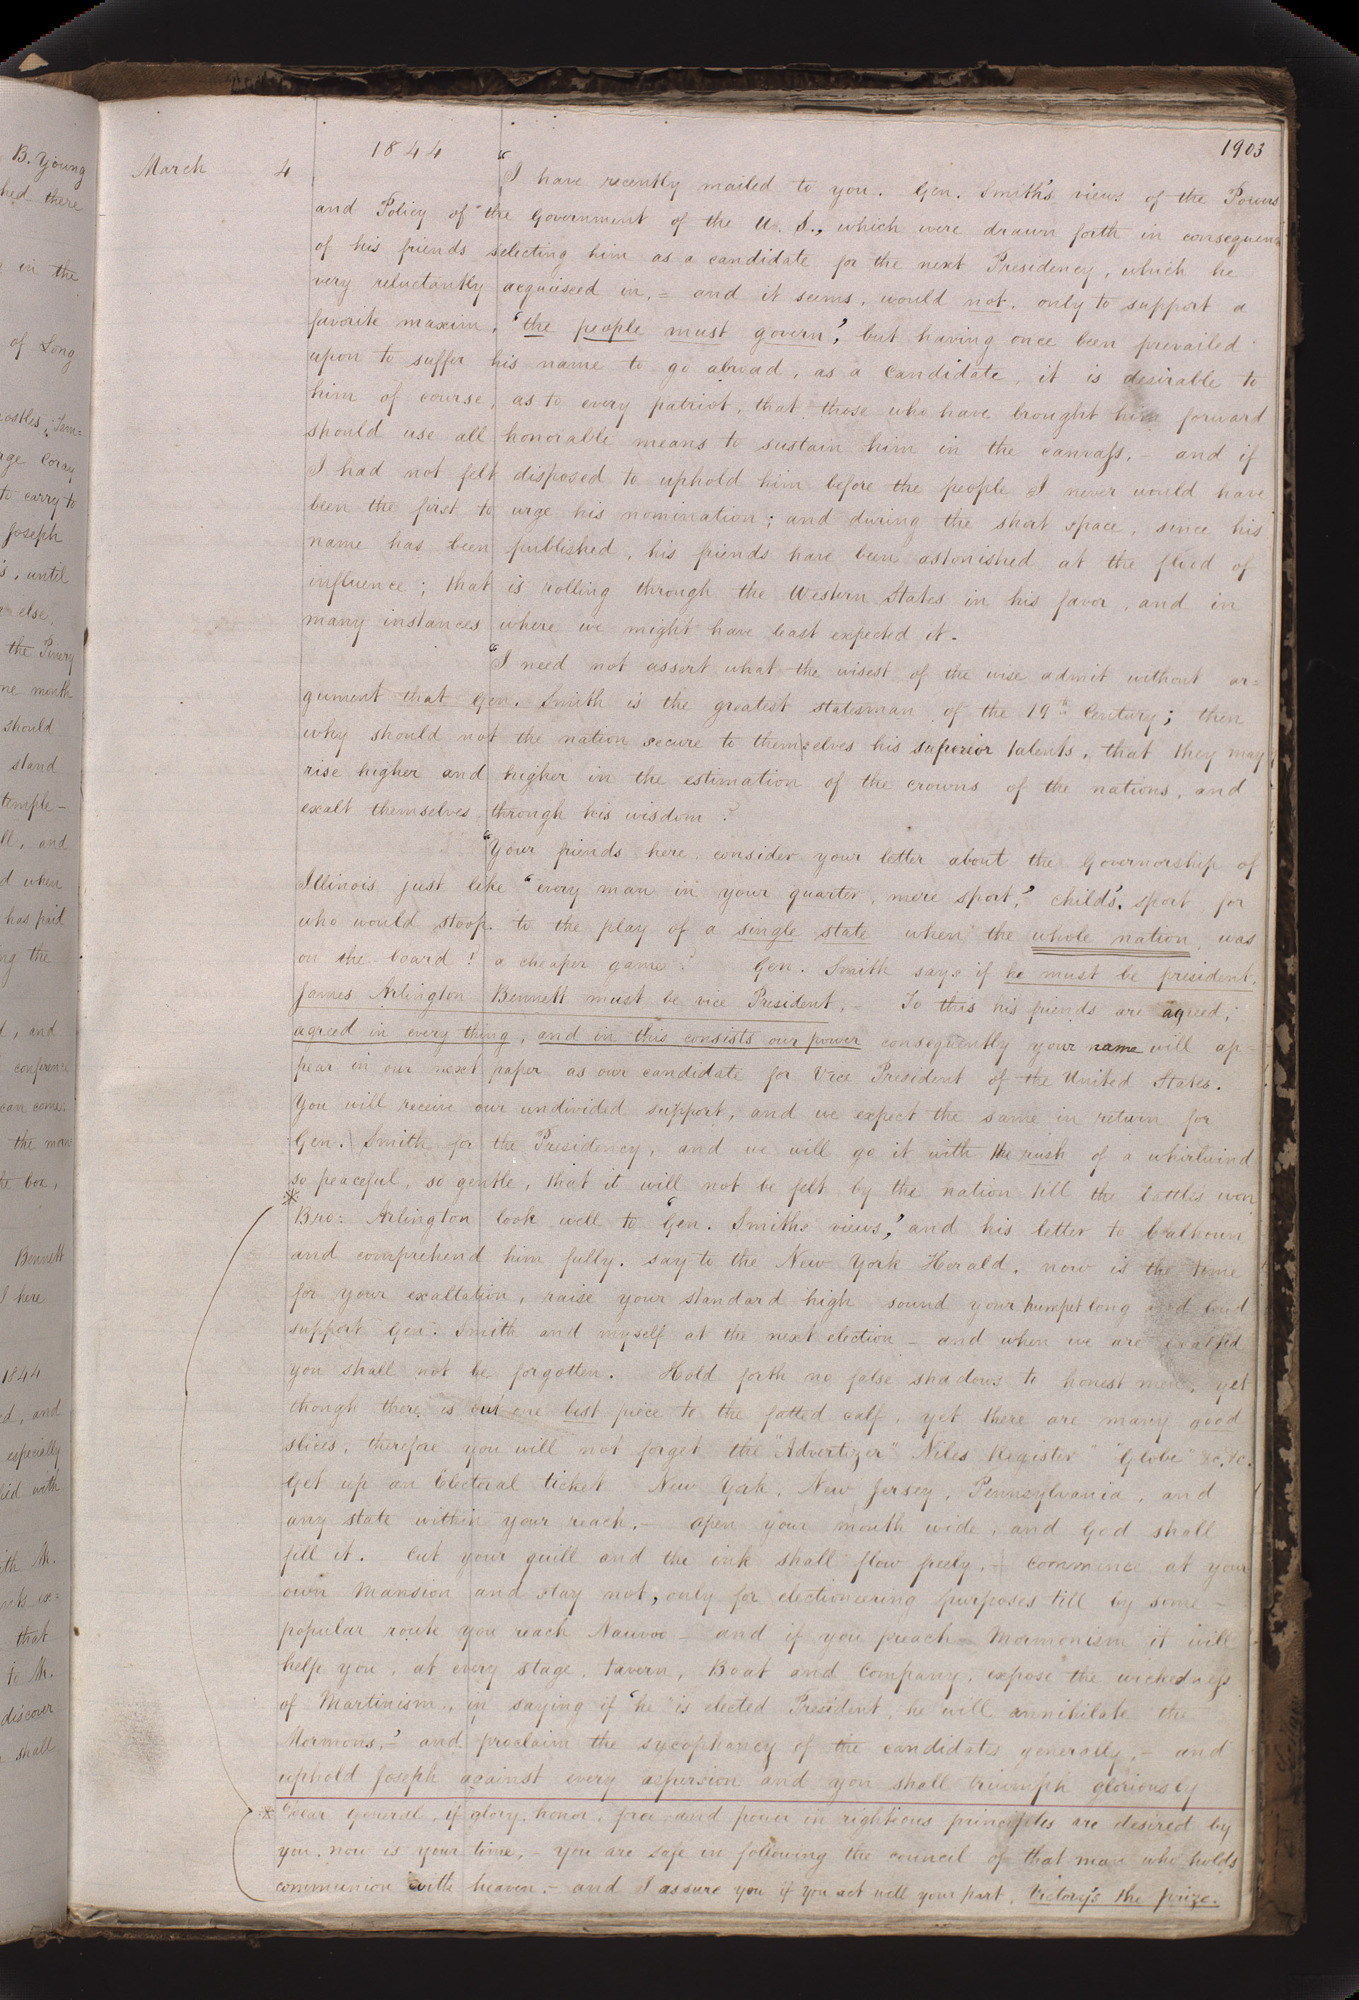 B. Young
hed there
in the
of Long
ostles, Tem=
rge Coray
to carry to
Joseph
s, until
else
the Pinery
ne month
should
stand
temple –
ll, and
d when
has paid
ng the
d, and
conference
can come.
the man
te box,
Bennett
I here
1844
ed, and
especially
lied with
ith M.
ex=
that
to M.
discover
shall
1844
1903
March 4
“I have recently mailed to you. Gen. Smith's views of the Powers
and Policy of the Government of the U. S., which were drawn forth in consequence
of his friends selecting him as a candidate for the next Presidency, which he
very reluctantly acquiesced in, = and it seems, would not, only to support a
favorite maxim, ‘the people must govern’, but having once been prevailed
upon to suffer his name to go abroad, as a candidate, it is desirable to
him of course, as to every patriot, that those who have brought him forward
should use all honorable means to sustain him in the canvass, – and if
I had not felt disposed to uphold him before the people I never would have
been the first to urge his nomination; and during the short space, since his
name has been published, his friends have been astonished at the flood of
influence; that is rolling through the Western States in his favor, and in
many instances where we might have least expected it.
“I need not assert what the wisest of the wise admit without ar=
gument that Gen. Smith is the greatest statesman of the 19th Century; then
why should not the nation secure to themselves his superior talents, that they may
rise higher and higher in the estimation of the crowns of the nations, and
exalt themselves through his wisdom?
“Your friends here consider your letter about the Governorship of
Illinois just like “every man in your quarter, mere sport,” child's sport for
who would stoop to the play of a single state when the whole nation was
on the board! a cheaper game! Gen. Smith says if he must be president,
James Arlington Bennett must be vice President, – To this his friends are agreed;
agreed in every thing, and in this consists our power consequently your name will ap=
pear in our next paper as our candidate for Vice President of the United States.
You will receive our undivided support, and we expect the same in return for
Gen. Smith for the Presidency, and we will go it with the rush of a whirlwind
so peaceful, so gentle, that it will not be felt by the nation till the battles won
* Bro: Arlington look well to ‘Gen. Smiths views,’ and his letter to Calhoun
and comprehend him fully. say to the New York Herald, now is the time
for your exaltation, raise your standard high sound your trumpet long and loud
support Gen. Smith and myself at the next election – and when we are exalted
you shall not be forgotten. Hold forth no false shadows to honest men, yet
though there is but one best piece to the fatted calf, yet there are many good
slices, therefore you will not forget the “Advertizer” Niles Register” “Globe” &c. &c.
Get up an Electoral ticket New York, New Jersey, Pennsylvania, and
any state within your reach. – Open your mouth wide, and God shall
fill it. Cut your quill and the ink shall flow freely. + Commence at your
own Mansion and stay not, only for electioneering purposes till by some –
popular route you reach Nauvoo – and if you preach Mormonism it will
help you, at every stage, tavern, Boat and Company, expose the wickedness
of Martinism, in saying if “he is elected President, he will annihilate the
Mormons,” – and proclaim the sycophancy of the candidates generally, – and
uphold Joseph against every aspersion and you shall triumph gloriously
* Dear General, if glory, honor, force, and power in righteous principles are desired by
you, now is your time, – you are safe in following the council of that man who holds
communion with heaven. – and I assure you if you act well your part, Victory's the prize.